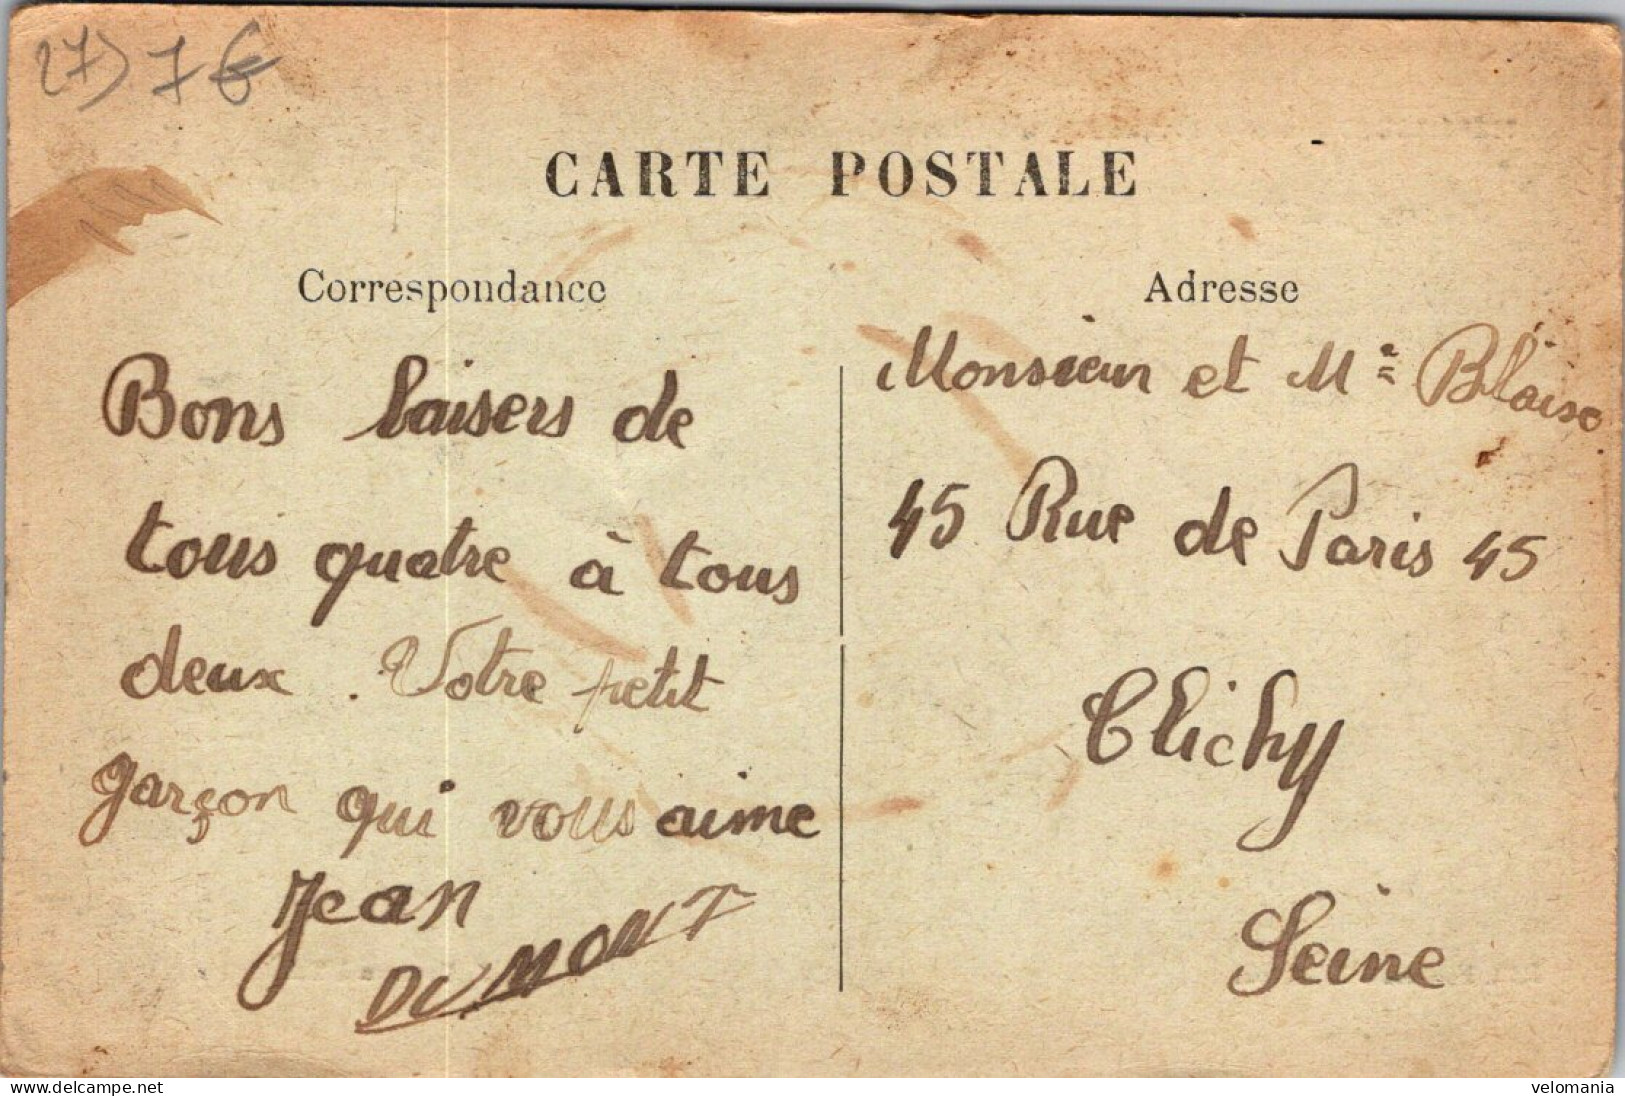 27) 7€
CARTE POSTALE
Correspondance
Bons baisers de
tous quatre à tous
deux. Votre petit
garçon qui vous aime
Jean
DUMONT
Adresse
Monsieur et Me Blaise
45 Rue de Paris 45
Clichy
Seine
www.delcampe.net
velomania